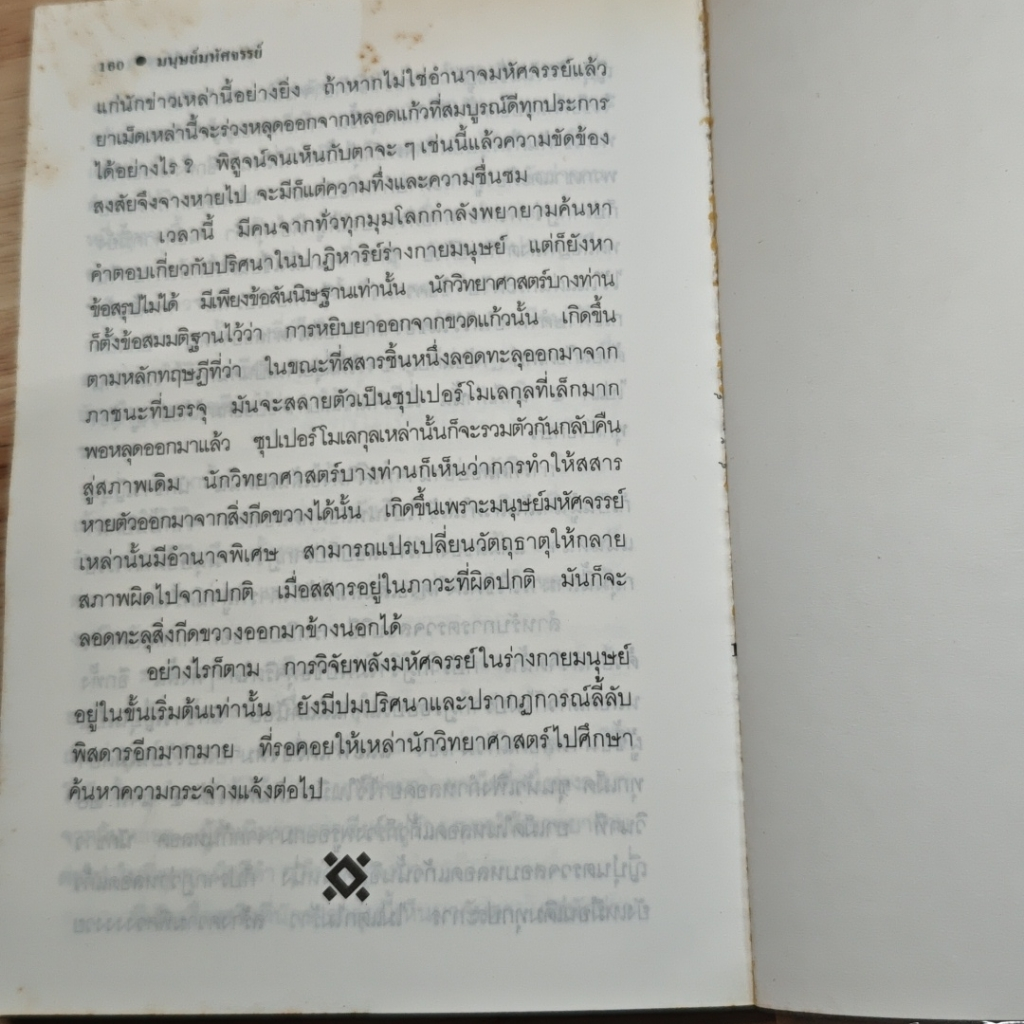 160 ● มนุษย์มหัศจรรย์
แก่นักข่าวเหล่านี้อย่างยิ่ง ถ้าหากไม่ใช่อำนาจมหัศจรรย์แล้ว
ยาเม็ดเหล่านี้จะร่วงหลุดออกจากหลอดแก้วที่สมบูรณ์ดีทุกประการ
ได้อย่างไร ? พิสูจน์จนเห็นกับตาจะ ๆ เช่นนี้แล้วความขัดข้อง
สงสัยจึงจางหายไป จะมีก็แต่ความทึ่งและความชื่นชม
เวลานี้ มีคนจากทั่วทุกมุมโลกกำลังพยายามค้นหา
คำตอบเกี่ยวกับปริศนาในปาฏิหาริย์ร่างกายมนุษย์ แต่ก็ยังหา
ข้อสรุปไม่ได้ มีเพียงข้อสันนิษฐานเท่านั้น นักวิทยาศาสตร์บางท่าน
ก็ตั้งข้อสมมติฐานไว้ว่า การหยิบยาออกจากขวดแก้วนั้น เกิดขึ้น
ตามหลักทฤษฎีที่ว่า ในขณะที่สสารชิ้นหนึ่งลอดทะลุออกมาจาก
ภาชนะที่บรรจุ มันจะสลายตัวเป็นซุปเปอร์โมเลกุลที่เล็กมาก
พอหลุดออกมาแล้ว ซุปเปอร์โมเลกุลเหล่านั้นก็จะรวมตัวกันกลับคืน
สู่สภาพเดิม นักวิทยาศาสตร์บางท่านก็เห็นว่าการทำให้สสาร
หายตัวออกมาจากสิ่งกีดขวางได้นั้น เกิดขึ้นเพราะมนุษย์มหัศจรรย์
เหล่านั้นมีอำนาจพิเศษ สามารถแปรเปลี่ยนวัตถุธาตุให้กลาย
สภาพผิดไปจากปกติ เมื่อสสารอยู่ในภาวะที่ผิดปกติ มันก็จะ
ลอดทะลุสิ่งกีดขวางออกมาข้างนอกได้
อย่างไรก็ตาม การวิจัยพลังมหัศจรรย์ในร่างกายมนุษย์
อยู่ในขั้นเริ่มต้นเท่านั้น ยังมีปมปริศนาและปรากฏการณ์ลี้ลับ
พิสดารอีกมากมาย ที่รอคอยให้เหล่านักวิทยาศาสตร์ไปศึกษา
ค้นหาความกระจ่างแจ้งต่อไป